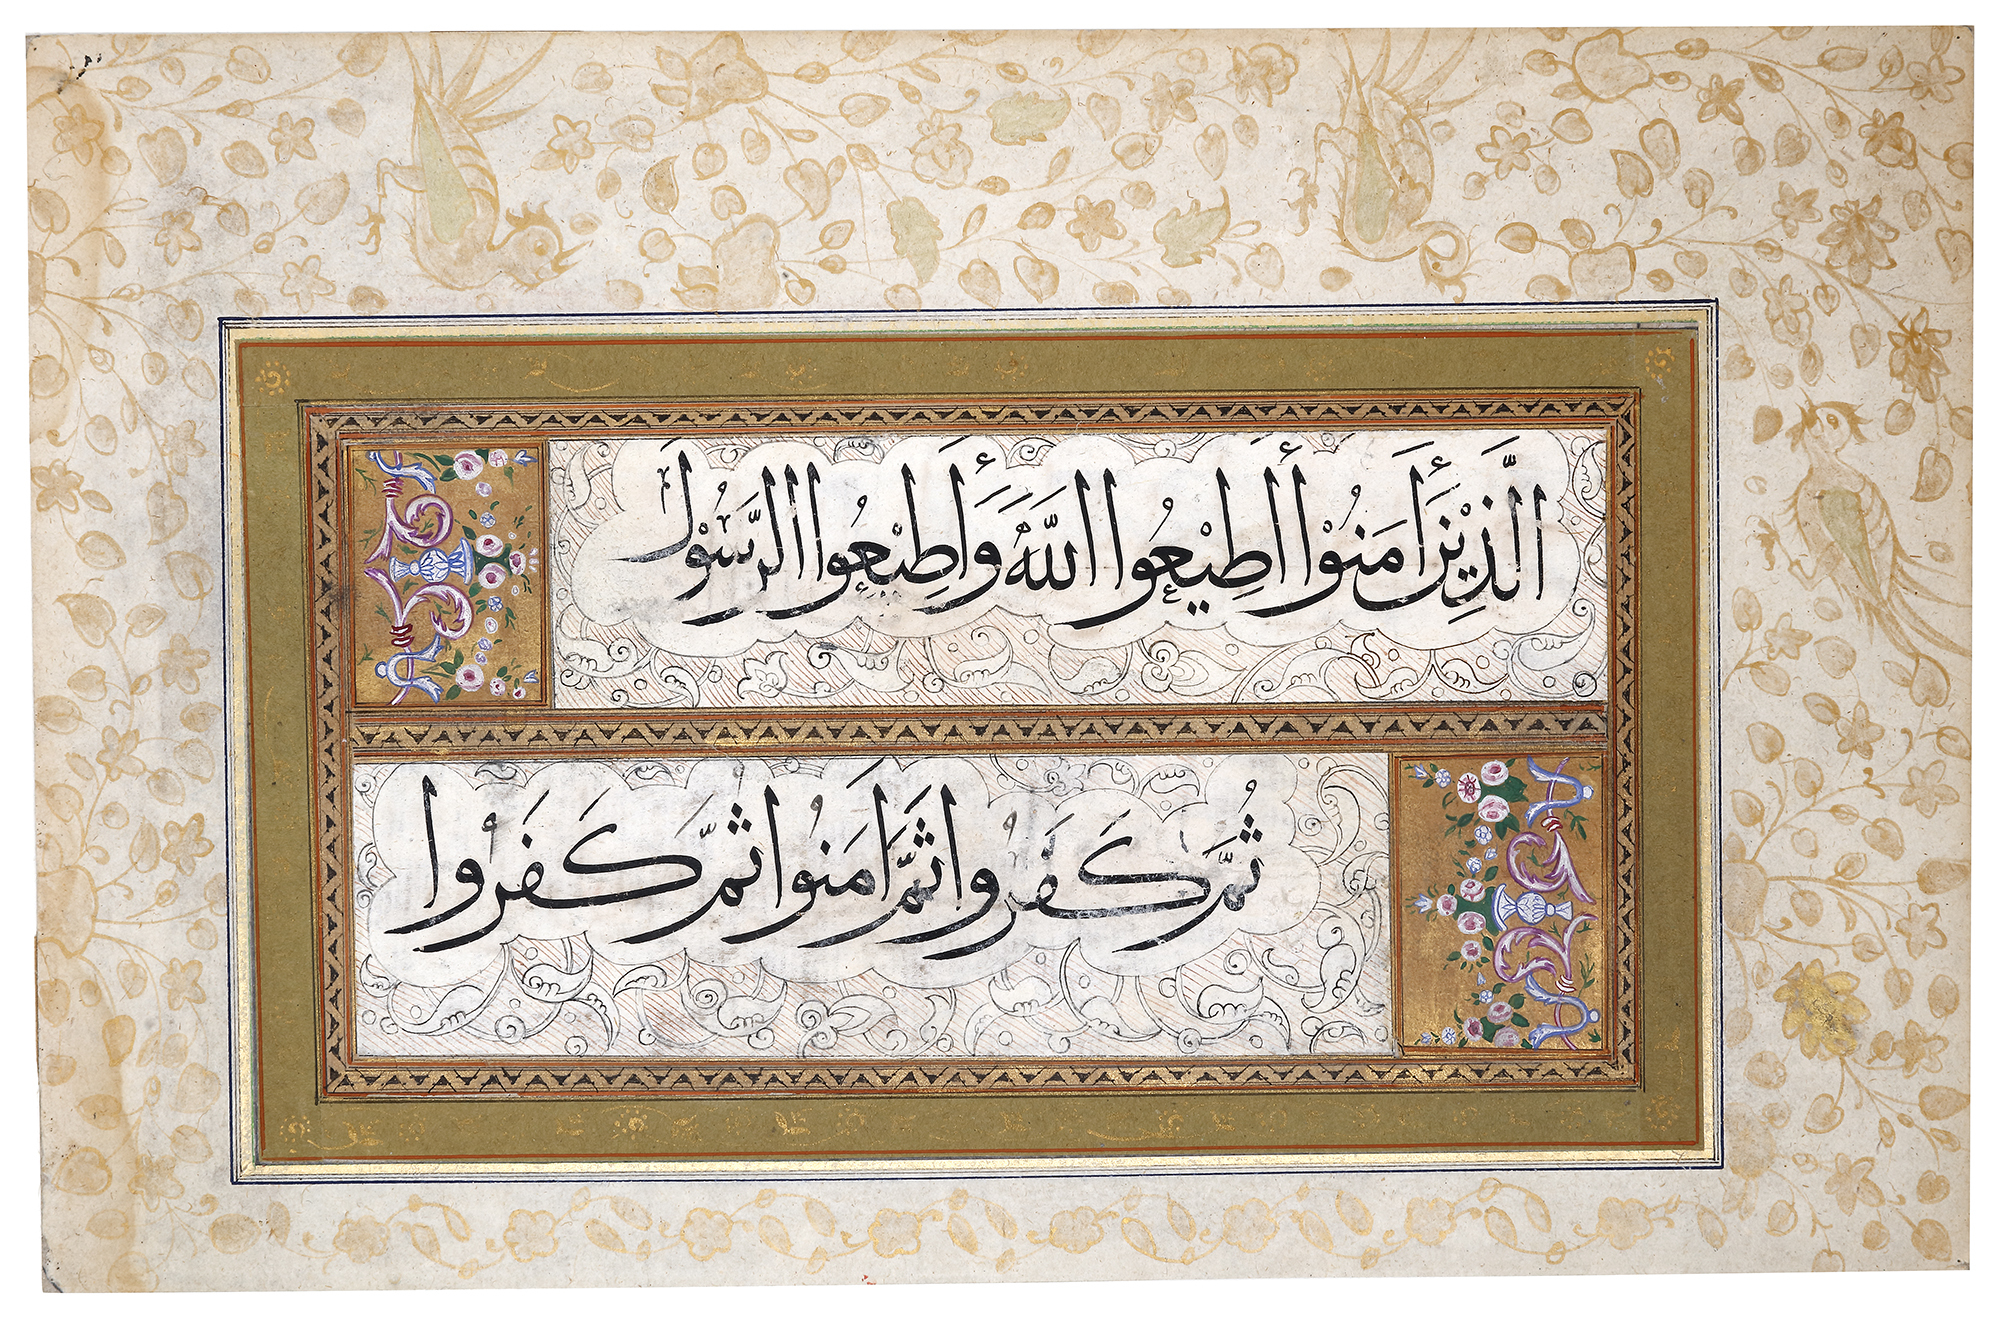 الَّذِيْنَ أٰمَنُوْا أَطِيْعُوا اللّٰهَ وَأَطِيْعُوا الرَّسُوْلَ
ثُمَّ كَفَرُوا ثُمَّ اٰمَنُوا ثُمَّ كَفَرُوا